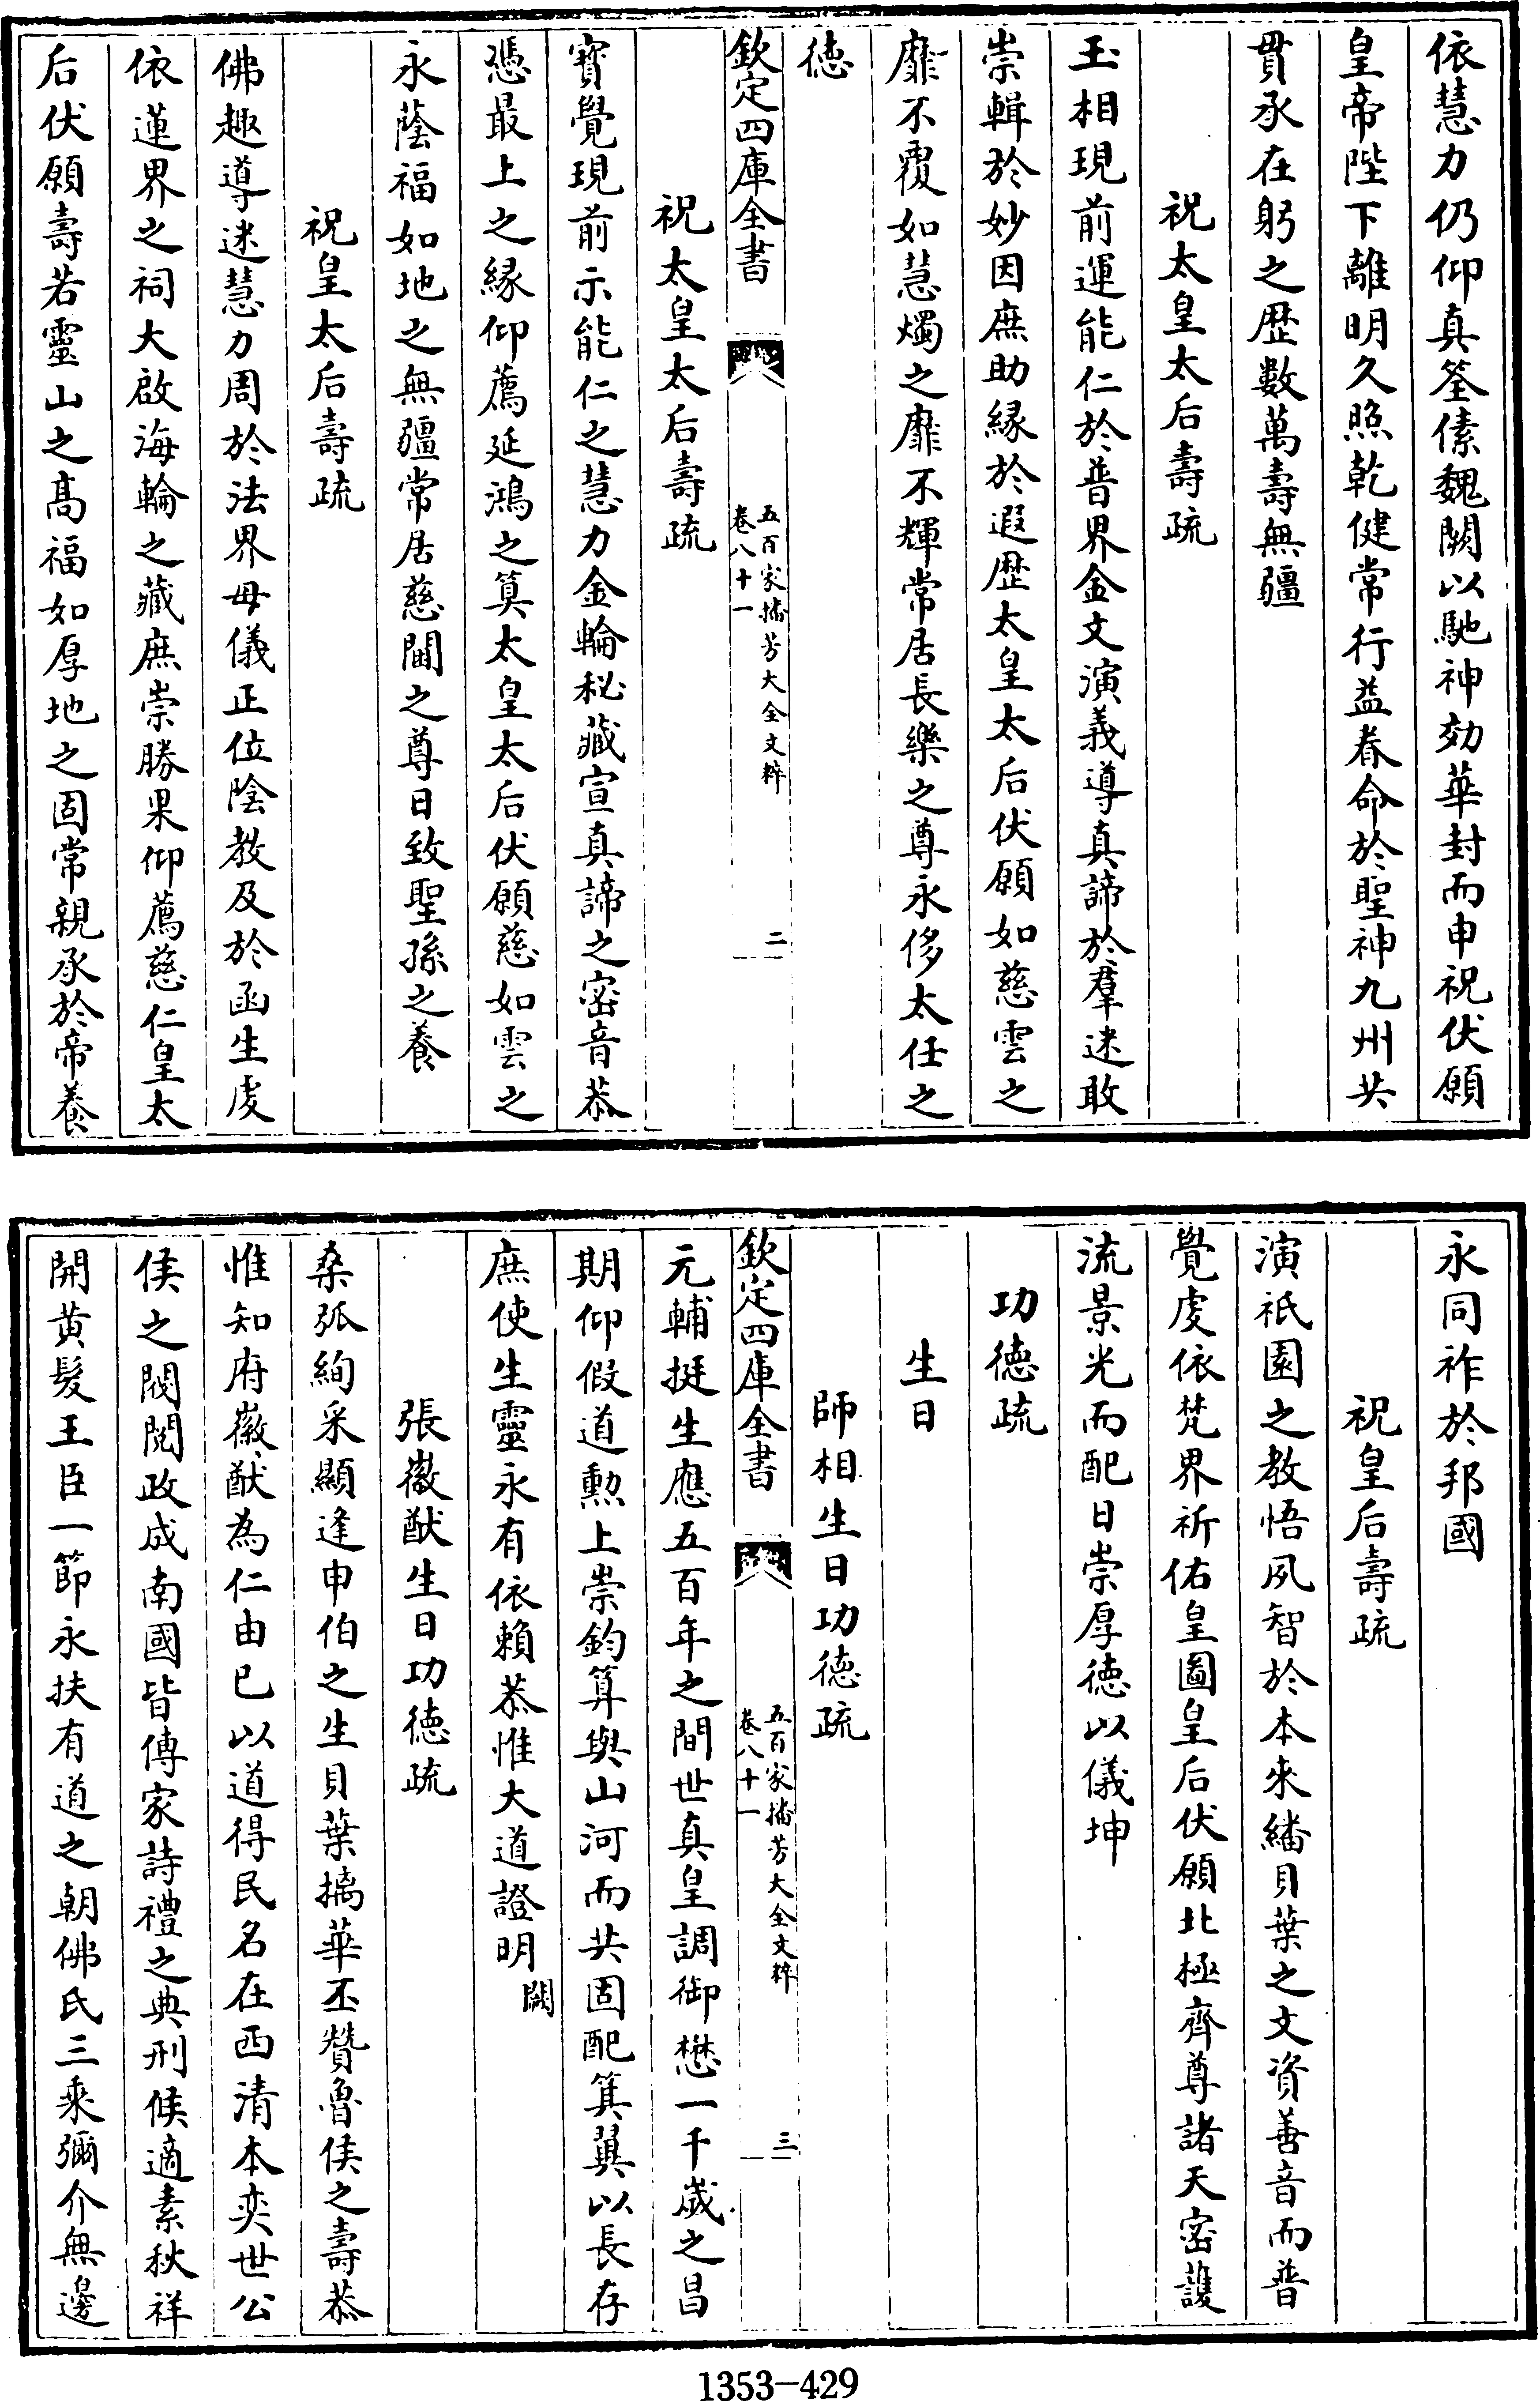 依慧力仍仰真筌傃魏闕以馳神効華封而申祝伏願
皇帝陛下離明久照乾健常行益眷命於聖神九州共
貫承在躬之歴數萬壽無疆
祝太皇太后壽疏
玉相現前運能仁於普界金文演義導真諦於羣迷敢
崇輯於妙因庶助縁於遐歴太皇太后伏願如慈雲之
靡不覆如慧燭之靡不輝常居長樂之尊永侈太任之
徳
欽定四庫全書
五百家播芳大全文粹
卷八十一
二
祝太皇太后壽疏
寳覺現前示能仁之慧力金輪秘藏宣真諦之密音恭
憑最上之縁仰薦延鴻之筭太皇太后伏願慈如雲之
永蔭福如地之無疆常居慈闈之尊日致聖孫之養
祝皇太后壽疏
佛趣導迷慧力周於法界母儀正位陰教及於函生䖍
依蓮界之祠大啟海輪之藏庶崇勝果仰薦慈仁皇太
后伏願壽若靈山之髙福如厚地之固常親承於帝養
永同祚於邦國
祝皇后壽疏
演祇園之教悟夙智於本來繙貝葉之文資善音而普
覺䖍依梵界祈佑皇圖皇后伏願北極齊尊諸天密䕶
流景光而配日崇厚徳以儀坤
功徳疏
生日
師相生日功徳疏
欽定四庫全書
五百家播芳大全文粹
卷八十一
三
元輔挺生應五百年之間世真皇調御懋一千歲之昌
期仰假道勲上崇鈞算與山河而共固配箕翼以長存
庶使生靈永有依賴恭惟大道證明闕
張徽猷生日功徳疏
桑弧絢采顯逢申伯之生貝葉摛華丕贊魯侯之壽恭
惟知府徽猷為仁由已以道得民名在西清本奕世公
侯之閥閱政成南國皆傳家詩禮之典刑候適素秋祥
開黄髪王臣一節永扶有道之朝佛氏三乘彌介無邊
1353-429